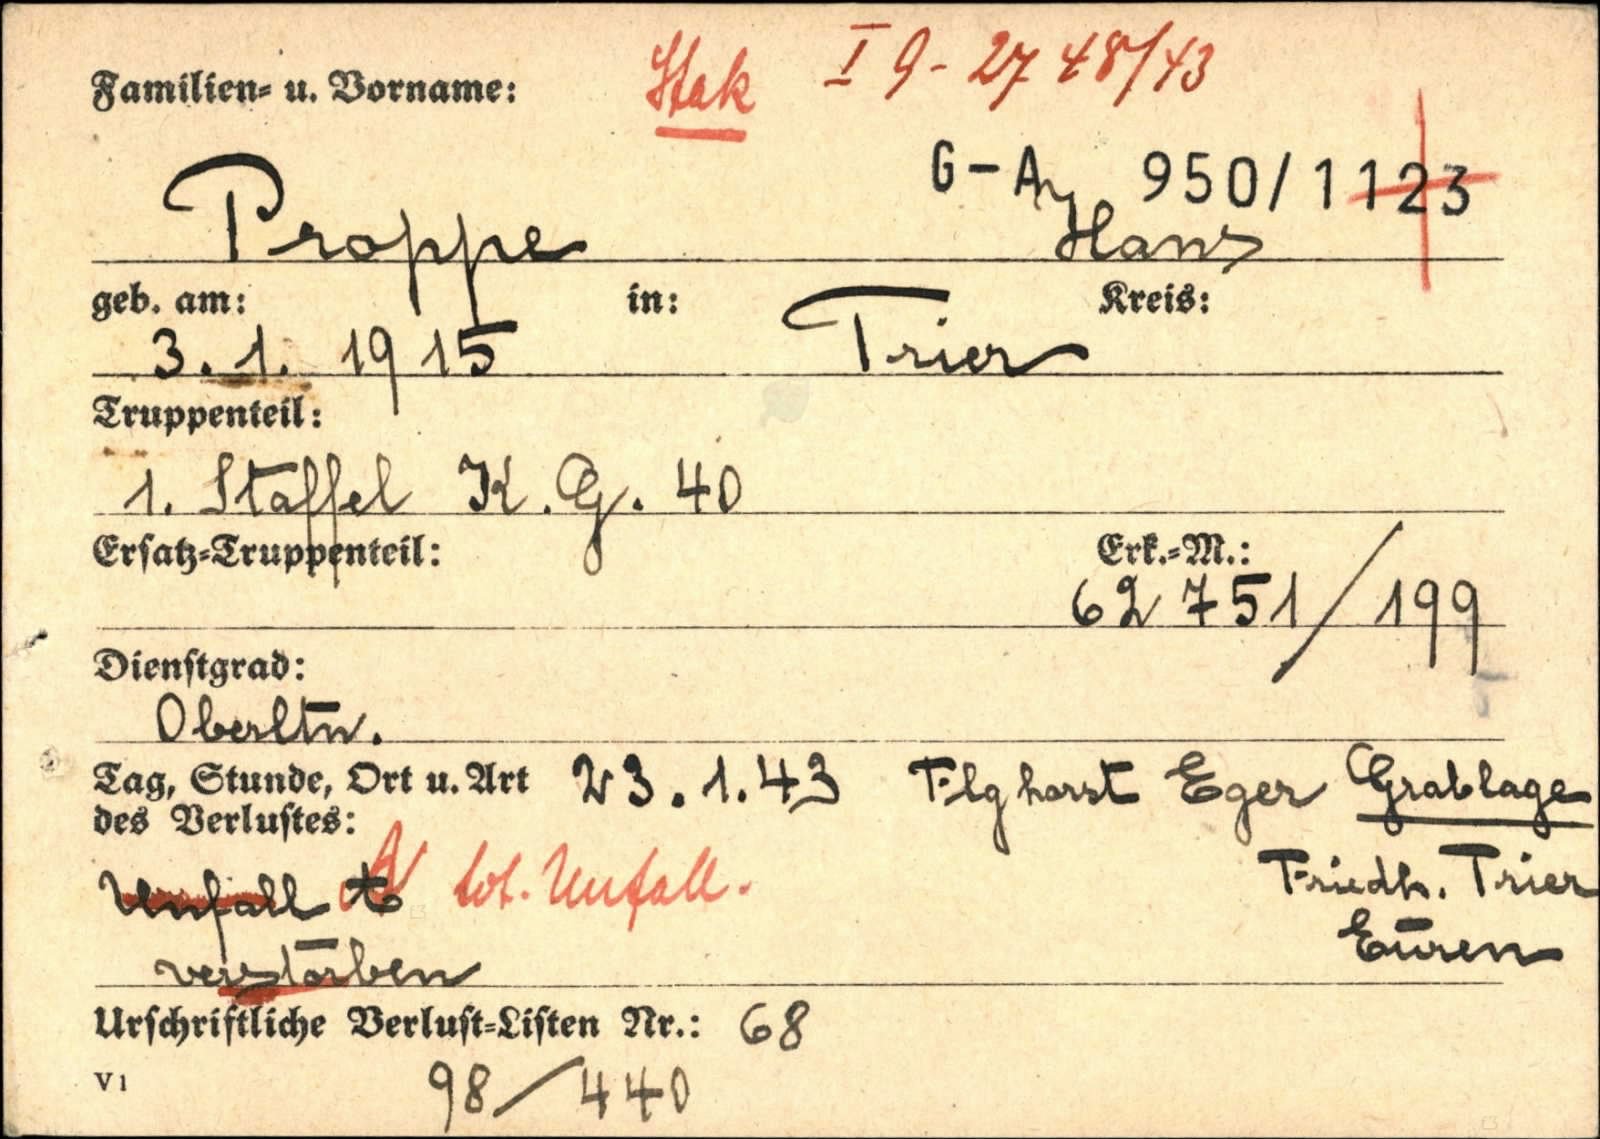 Familien- u. Vorname: Stak I 9 - 2748/43
G-A 950/1123
Proppe Hans
geb. am: in: Kreis:
3. 1. 1915 Trier
Truppenteil:
1. Staffel K.G. 40
Ersatz-Truppenteil: Erk.-M.:
62751/199
Dienstgrad:
Oberltn.
Tag, Stunde, Ort u. Art 23.1.43 Flghorst Eger Grablage
des Verlustes:
Unfall t tot. Unfall. Friedh. Trier
Euren
verstorben
Urschriftliche Verlust-Listen Nr.: 68
V1 98/440